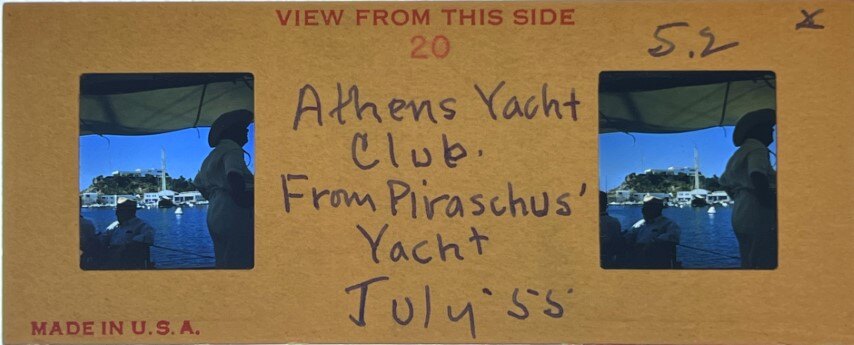 VIEW FROM THIS SIDE
20
5.2
x
Athens Yacht
Club.
From Piraschus'
Yacht
July '55
MADE IN U.S.A.